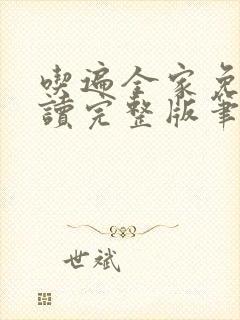 喫遍全家免
讀完整版筆
世斌